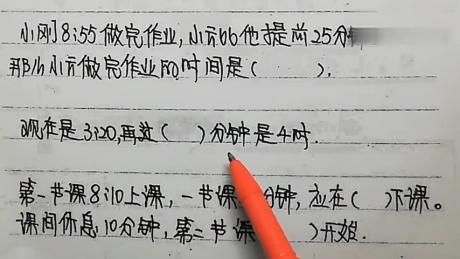 小刚8:55做完作业,小云比他提前25分
那么小云做完作业的时间是( ).
现在是3:20,再过( )分钟是4时.
第一节课8:10上课,一节课 分钟,应在( )下课。
课间休息10分钟,第二节课 )开始.